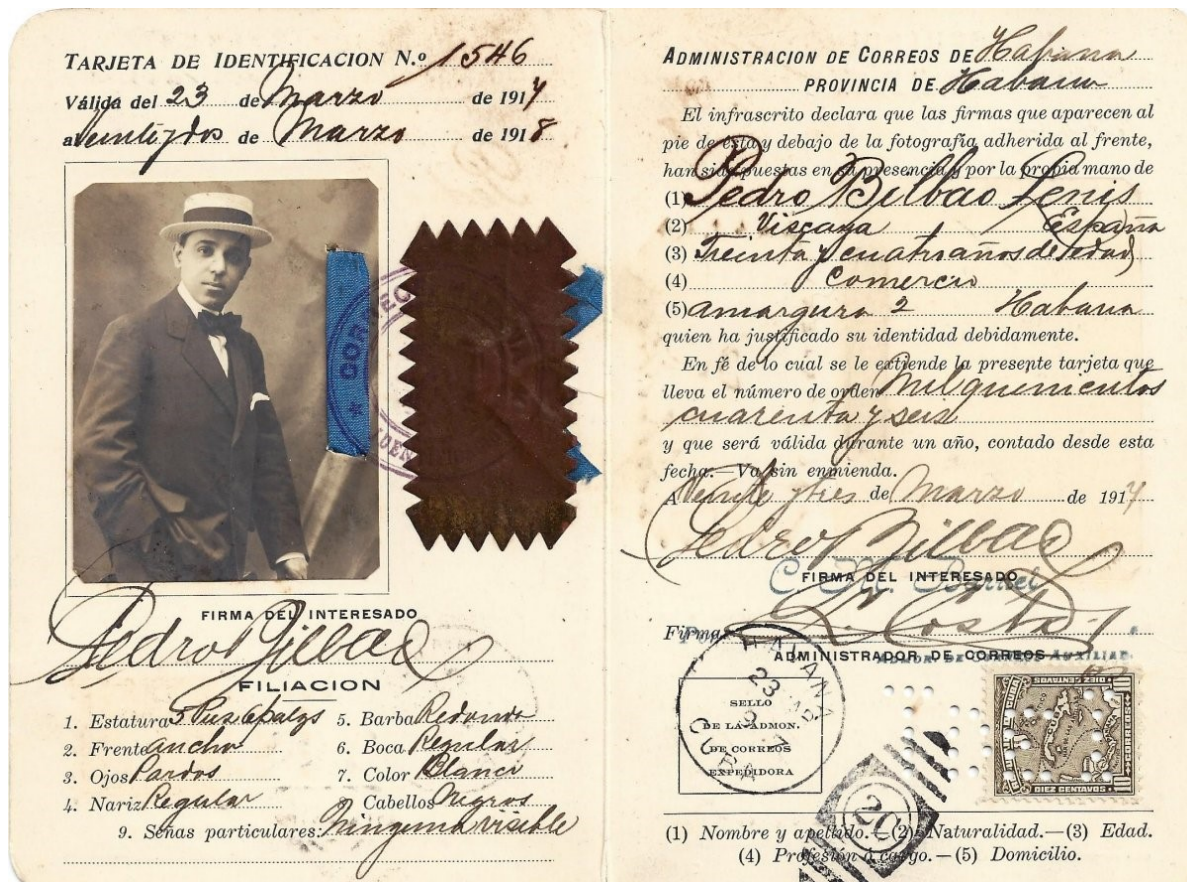 TARJETA DE IDENTIFICACION N.º 1546
Válida del 23 de Marzo de 1917
a Veinte y dos de Marzo de 1918
CORREO
FIRMA DEL INTERESADO
Pedro Bilbao
FILIACION
1. Estatura 5 Pies 6 palgs 5. Barba Redonda
2. Frente ancha 6. Boca Regular
3. Ojos Pardos 7. Color Blanco
4. Nariz Regular Cabellos Negros
9. Señas particulares: Ninguna visible
ADMINISTRACION DE CORREOS DE Habana
PROVINCIA DE Habana
El infrascrito declara que las firmas que aparecen al
pie de esta y debajo de la fotografía adherida al frente,
han sido puestas en su presencia y por la propia mano de
(1) Pedro Bilbao Lenis
(2) Viscaya España
(3) Treinta y cuatro años de edad
(4) Comercio
(5) Amargura 2 Habana
quien ha justificado su identidad debidamente.
En fé de lo cual se le extiende la presente tarjeta que
lleva el número de orden Mil quinientos
cuarenta y seis
y que será válida durante un año, contado desde esta
fecha.—Va sin enmienda.
A Veinte y tres de Marzo de 1917
Pedro Bilbao
FIRMA DEL INTERESADO
Firma
ADMINISTRADOR DE CORREOS AUXILIAR
HABANA
23
CUBA
SELLO
DE LA ADMON.
DE CORREOS
EXPEDIDORA
CUBA
10 DIEZ CENTAVOS 10
20
(1) Nombre y apellido.—(2) Naturalidad.—(3) Edad.
(4) Profesión ó cargo.—(5) Domicilio.